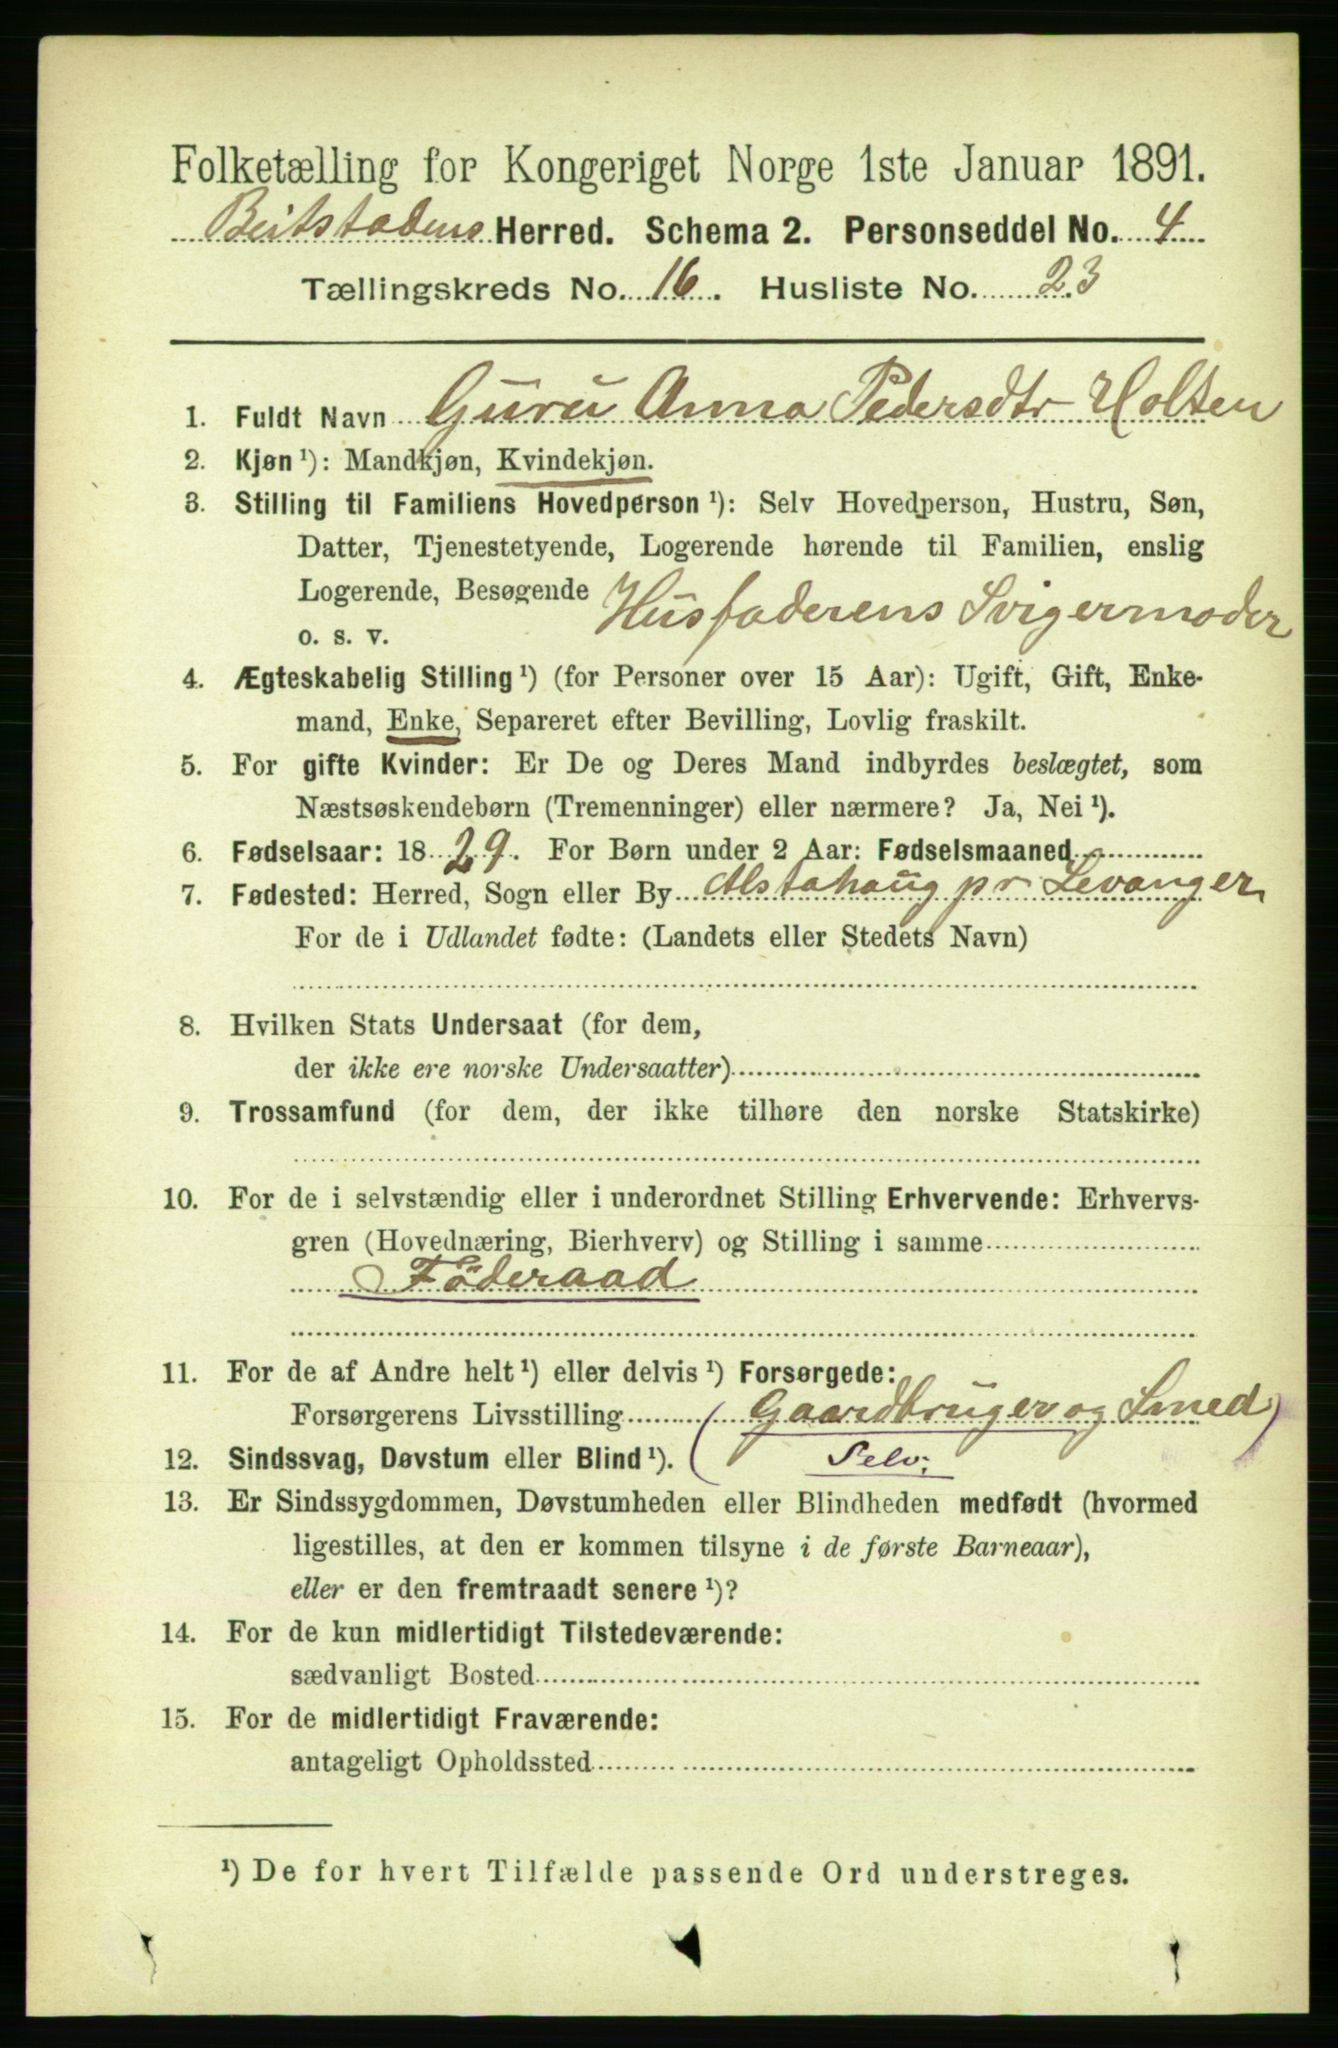 Folketælling for Kongeriget Norge 1ste Januar 1891.
Beitstadens Herred. Schema 2. Personseddel No. 4
Tællingskreds No. 16. Husliste No. 23
1. Fuldt Navn Guru Anna Pedersdtr Holten
2. Kjøn ¹): Mandkjøn, Kvindekjøn.
3. Stilling til Familiens Hovedperson ¹): Selv Hovedperson, Hustru, Søn,
Datter, Tjenestetyende, Logerende hørende til Familien, enslig
Logerende, Besøgende Husfaderens Svigermoder
o. s. v.
4. Ægteskabelig Stilling ¹) (for Personer over 15 Aar): Ugift, Gift, Enke-
mand, Enke, Separeret efter Bevilling, Lovlig fraskilt.
5. For gifte Kvinder: Er De og Deres Mand indbyrdes beslægtet, som
Næstsøskendebørn (Tremenninger) eller nærmere? Ja, Nei ¹).
6. Fødselsaar: 1829. For Børn under 2 Aar: Fødselsmaaned
7. Fødested: Herred, Sogn eller By Alstahaug pr Levanger
For de i Udlandet fødte: (Landets eller Stedets Navn)
8. Hvilken Stats Undersaat (for dem,
der ikke ere norske Undersaatter)
9. Trossamfund (for dem, der ikke tilhøre den norske Statskirke)
10. For de i selvstændig eller i underordnet Stilling Erhvervende: Erhvervs-
gren (Hovednæring, Bierhverv) og Stilling i samme
Föderaad
11. For de af Andre helt ¹) eller delvis ¹) Forsørgede:
Forsørgerens Livsstilling (Gaardbruger og Smed)
12. Sindssvag, Døvstum eller Blind ¹). ( Selv.
13. Er Sindssygdommen, Døvstumheden eller Blindheden medfødt (hvormed
ligestilles, at den er kommen tilsyne i de første Barneaar),
eller er den fremtraadt senere ¹)?
14. For de kun midlertidigt Tilstedeværende:
sædvanligt Bosted
15. For de midlertidigt Fraværende:
antageligt Opholdssted
¹) De for hvert Tilfælde passende Ord understreges.